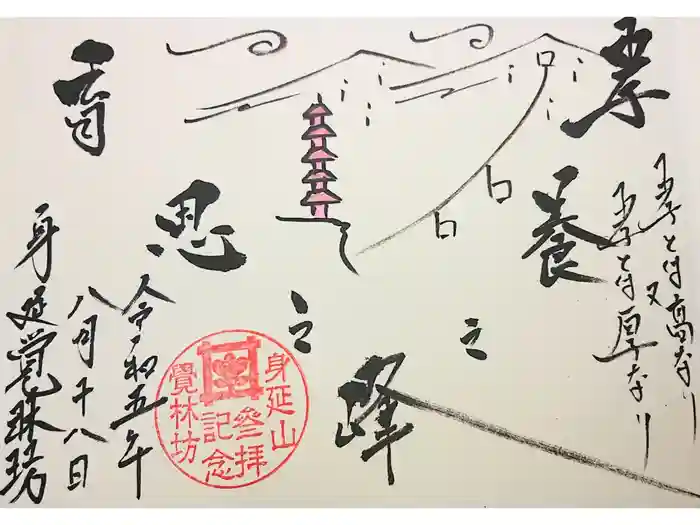 孝とは高なり
又
孝とは厚なり
孝養之峰
之
令和五年
八月十八日
身延覚林坊
身延山
參拝
記念
覺林坊